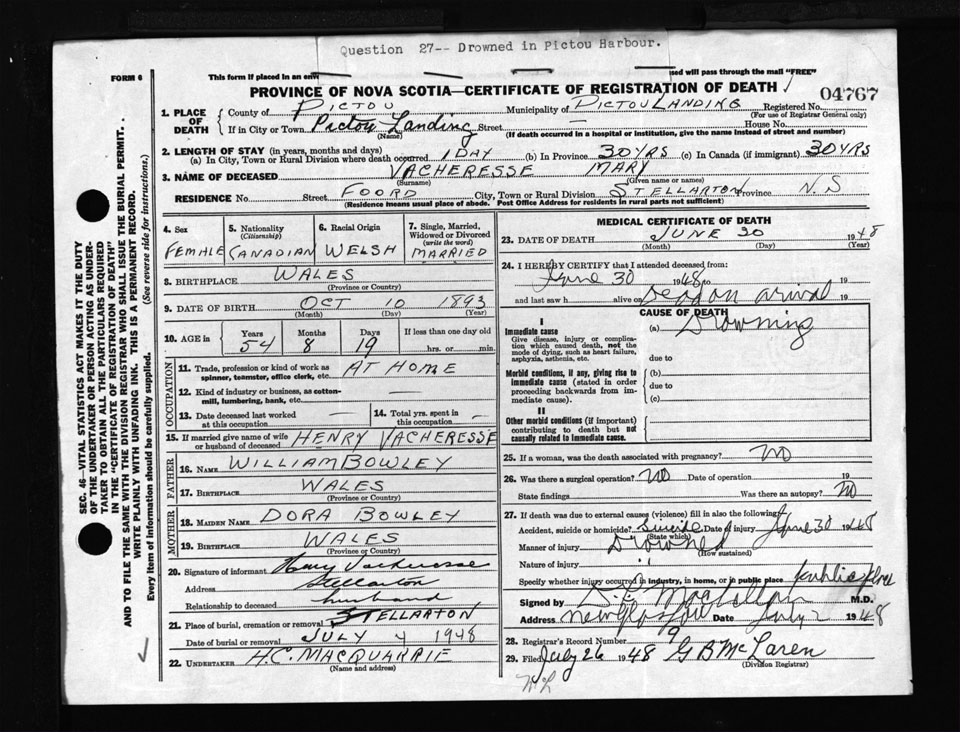 Question 27-- Drowned in Pictou Harbour.
FORM 6
This form if placed in an env
sed will pass through the mail "FREE"
PROVINCE OF NOVA SCOTIA—CERTIFICATE OF REGISTRATION OF DEATH
04767
1. PLACE OF DEATH
County of PICTOU Municipality of PICTOU LANDING Registered No.
(For use of Registrar General only)
If in City or Town Pictou Landing Street — House No.
(Name) (If death occurred in a hospital or institution, give the name instead of street and number)
2. LENGTH OF STAY (in years, months and days)
(a) In City, Town or Rural Division where death occurred 1 DAY (b) In Province 30 YRS (c) In Canada (if immigrant) 30 YRS
3. NAME OF DECEASED VACHERESSE MARY
(Surname) (Given name or names)
RESIDENCE No. Street FOORD City, Town or Rural Division STELLARTON Province N.S
(Residence means usual place of abode. Post Office Address for residents in rural parts not sufficient)
4. Sex FEMALE
5. Nationality (Citizenship) CANADIAN
6. Racial Origin WELSH
7. Single, Married, Widowed or Divorced (write the word) MARRIED
8. BIRTHPLACE WALES
(Province or Country)
9. DATE OF BIRTH OCT 10 1893
(Month) (Day) (Year)
10. AGE in Years 54 Months 8 Days 19 If less than one day old hrs. or min.
OCCUPATION
11. Trade, profession or kind of work as spinner, teamster, office clerk, etc. AT HOME
12. Kind of industry or business, as cotton-mill, lumbering, bank, etc. —
13. Date deceased last worked at this occupation —
14. Total yrs. spent in this occupation —
15. If married give name of wife or husband of deceased HENRY VACHERESSE
FATHER
16. NAME WILLIAM BOWLEY
17. BIRTHPLACE WALES
(Province or Country)
MOTHER
18. MAIDEN NAME DORA BOWLEY
19. BIRTHPLACE WALES
(Province or Country)
20. Signature of informant Henry Vacheresse
Address Stellarton
Relationship to deceased husband
21. Place of burial, cremation or removal STELLARTON
Date of burial or removal JULY 4 1948
22. UNDERTAKER H.C. MACQUARRIE
(Name and address)
MEDICAL CERTIFICATE OF DEATH
23. DATE OF DEATH JUNE 30 1948
(Month) (Day) (Year)
24. I HEREBY CERTIFY that I attended deceased from:
June 30 1948 to 19
and last saw h alive on arrival 19
CAUSE OF DEATH
I
Immediate cause
Give disease, injury or complication which caused death, not the mode of dying, such as heart failure, asphyxia, asthenia, etc.
(a) Drowning
due to
Morbid conditions, if any, giving rise to immediate cause (stated in order proceeding backwards from immediate cause).
(b)
due to
(c)
II
Other morbid conditions (if important) contributing to death but not causally related to immediate cause.
25. If a woman, was the death associated with pregnancy? NO
26. Was there a surgical operation? NO Date of operation 19
State findings Was there an autopsy? NO
27. If death was due to external causes (violence) fill in also the following:
Accident, suicide or homicide? Suicide Date of injury June 30 1948
(State which)
Manner of injury Drowned
(How sustained)
Nature of injury
Specify whether injury occurred in industry, in home, or in public place public place
Signed by M.D.
Address New Glasgow Date July 2 1948
28. Registrar's Record Number 9
29. Filed July 26 1948 G B McLaren
(Division Registrar)
SEC. 46—VITAL STATISTICS ACT MAKES IT THE DUTY
OF THE UNDERTAKER OR PERSON ACTING AS UNDER-
TAKER TO OBTAIN ALL THE PARTICULARS REQUIRED
IN THE "CERTIFICATE OF REGISTRATION OF DEATH"
AND TO FILE THE SAME WITH THE DIVISION REGISTRAR WHO SHALL ISSUE THE BURIAL PERMIT.
WRITE PLAINLY WITH UNFADING INK. THIS IS A PERMANENT RECORD.
Every item of information should be carefully supplied. (See reverse side for instructions.)